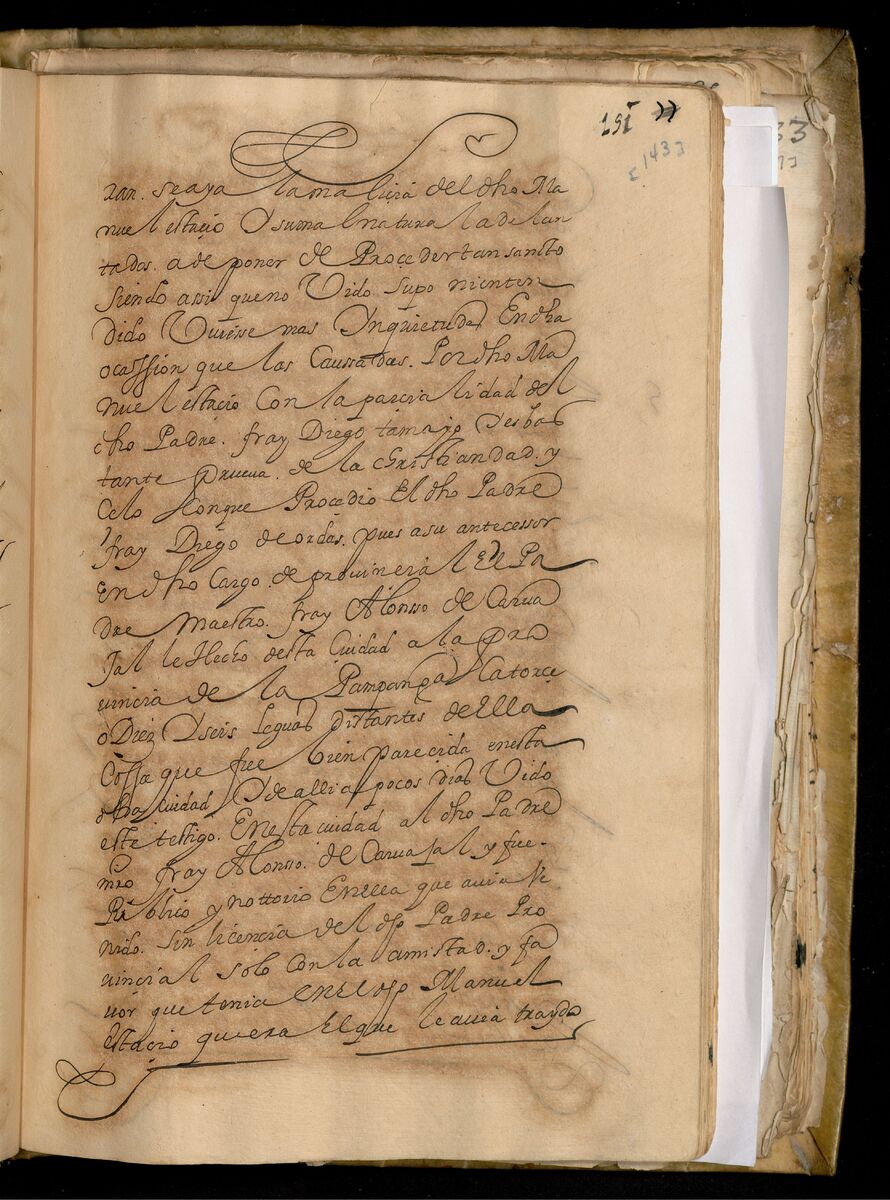 151
[143]
33
ran. se aya la malicia del dho Ma
nuel estacio Y su mal natural a delan
tados. a de poner de Proceder tan sancto
Siendo assi que no Vido Supo ni enten
dido Vuiesse mas Ynquietudes En dha
ocassion que las Caussadas. Por dho Ma
nuel estacio Con la parcialidad del
dho Padre. fray Diego tamayo Y es bas
tante prueua. de la christiandad. y
Celo Conque Procedio El dho Padre
fray Diego de ordas. pues a su antecessor
En dho Cargo. de prouincial El Pa
dre Maestro. fray Alonsso de Carua
Jal le Hecho desta Ciudad a la pro
uincia de la Pampanga Catorce
o Diez Y seis leguas distantes de Ella
Cossa que fue bien parecida en esta
dha ciudad Y de alli a pocos dias Vido
este testigo. En esta ciudad al dho Padre
mro fray Alonsso. de Caruajal y fue.
Publico y nottorio En ella que auia Ve
nido. Sin licencia del dho Padre Pro
uincial solo Con la amistad. y fa
uor que tenia En El dho Manuel
Estacio que era El que le auia traydo